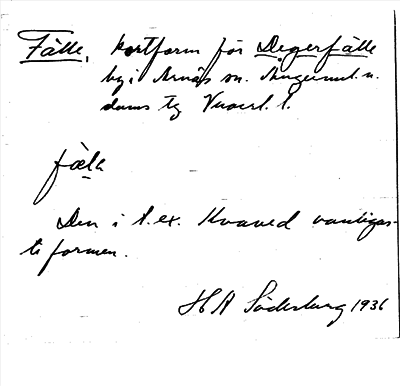 Fälle, kortform för Degerfälle
by i Arnäs sn. Ångerml.n.
doms tg Vnorrl. l.
fälɛ
Den i t.ex. Kvaved vanligas-
te formen.
H A Söderberg 1936